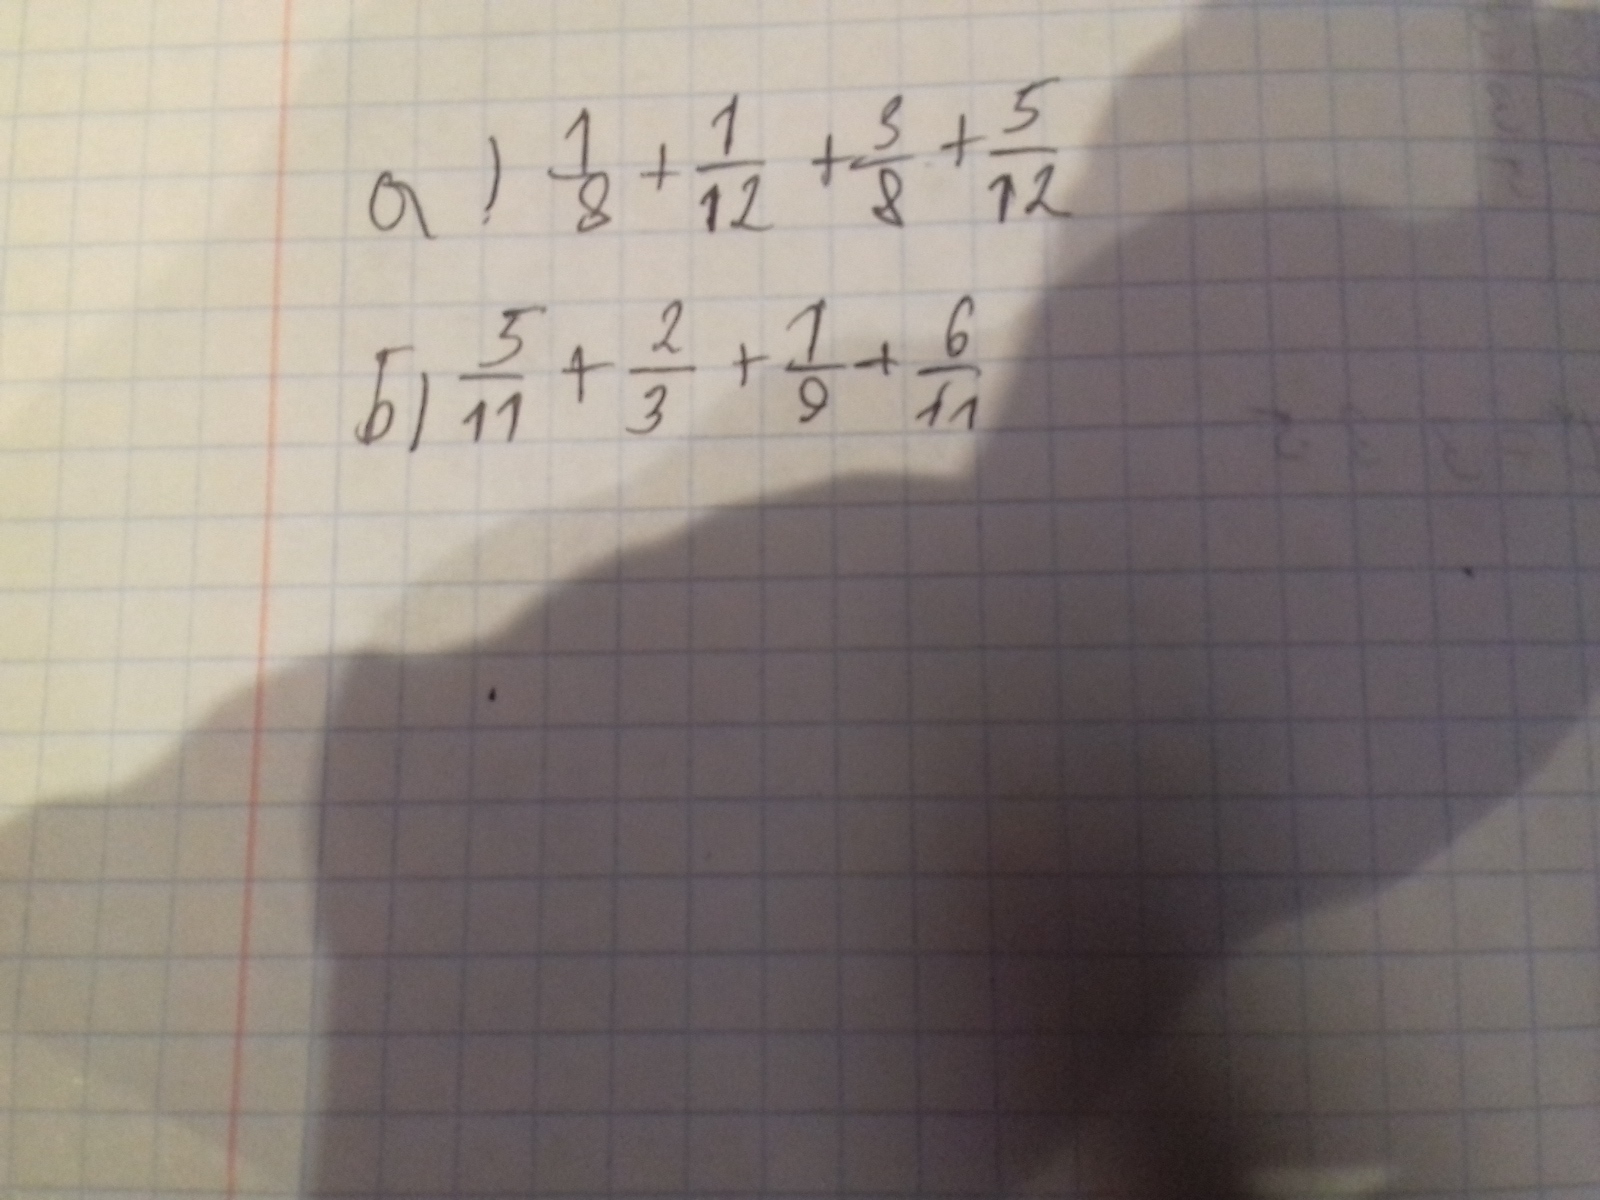 а) 1/8 + 1/12 + 3/8 + 5/12
б) 5/11 + 2/3 + 1/9 + 6/11